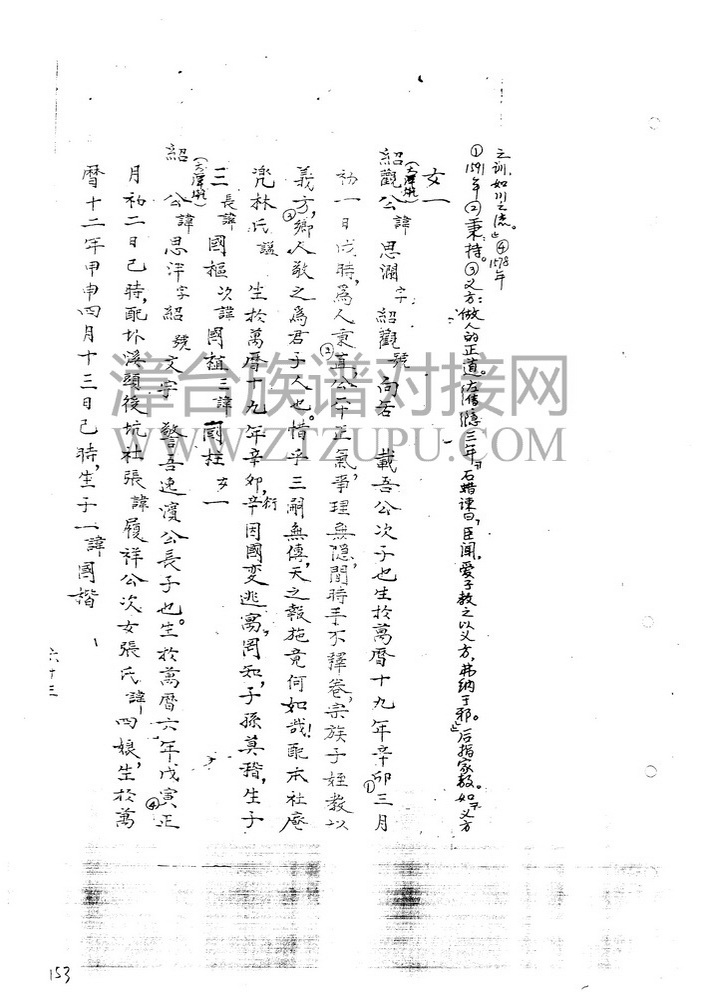 ①1591年②秉:持。③义方:做人的正道。左传隐三年:“石蜡谏曰,臣闻,爱子教之以义方,弗纳于邪。”后指家教。如“义方
之训,如川之流。”④1578年
女一
紹觀公諱思瀾字紹觀號向若 載吾公次子也生於萬曆十九年辛卯①三月
(大潭墘)
初一日戌時,為人秉②公平正氣,爭理無隱,閒時手不釋卷,宗族子姪教以
義方③,鄉人敬之為君子人也。惜乎三嗣無傳,天之報施竟何如哉!配本社庵
兠林氏諡 生於萬曆十九年辛卯,辛因國变逃寓,罔知,子孫莫稽,生子
衍
三長諱國樞次諱國植三諱國柱女一
紹 公諱思洋字紹 號文宇 警吾逸濱公長子也。生於萬曆六年戊寅④正
(大潭墘)
月初二日巳時,配圤溪頭後坑社張諱履祥公次女張氏諱四娘,生於萬
曆十二年甲申四月十三日巳時,生子一諱國楷
六十三
153
漳台族谱对接网
WWW.ZTZUPU.COM